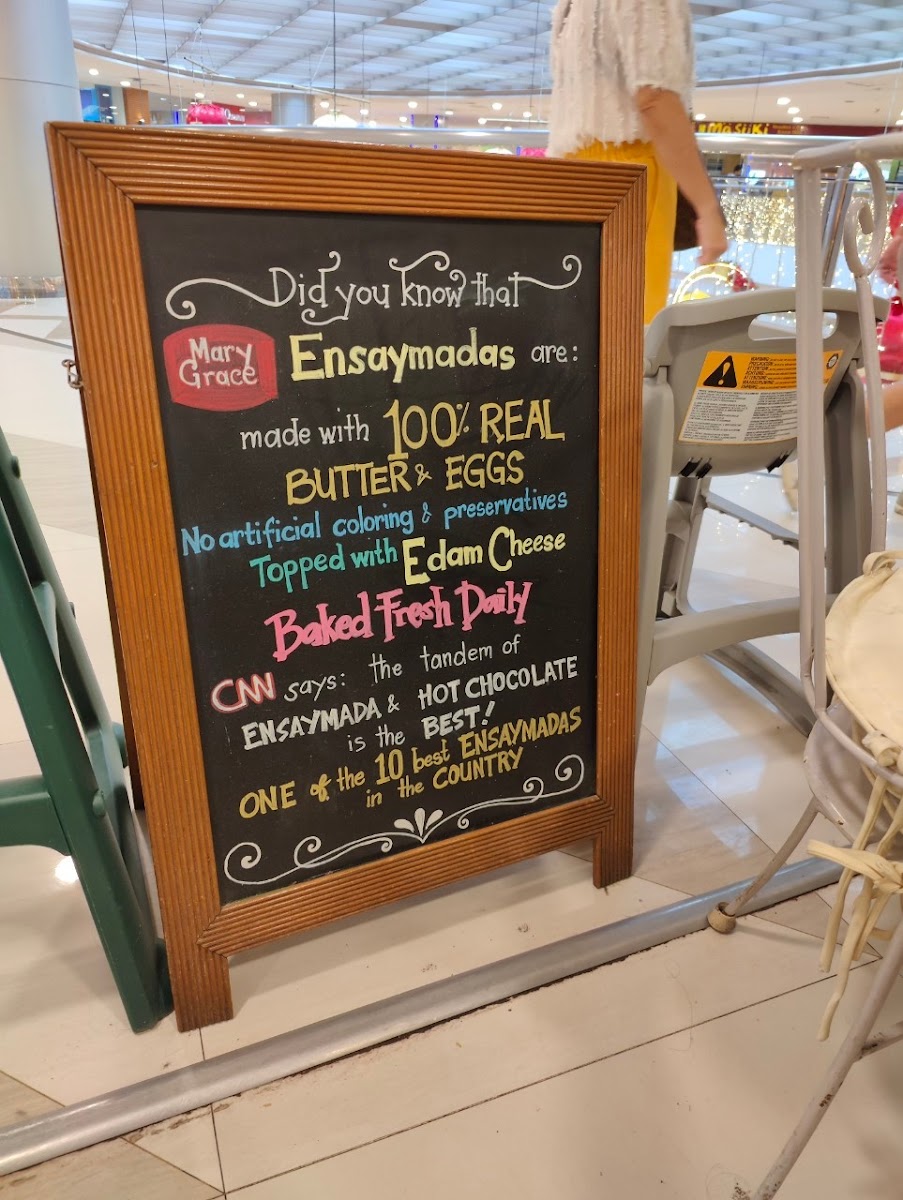 Did you know that
Mary Grace Ensaymadas are:
made with 100% REAL
BUTTER & EGGS
No artificial coloring & preservatives
Topped with Edam Cheese
Baked Fresh Daily
CNN says: the tandem of
ENSAYMADA & HOT CHOCOLATE
is the BEST!
ONE of the 10 best ENSAYMADAS
in the COUNTRY
WARNING